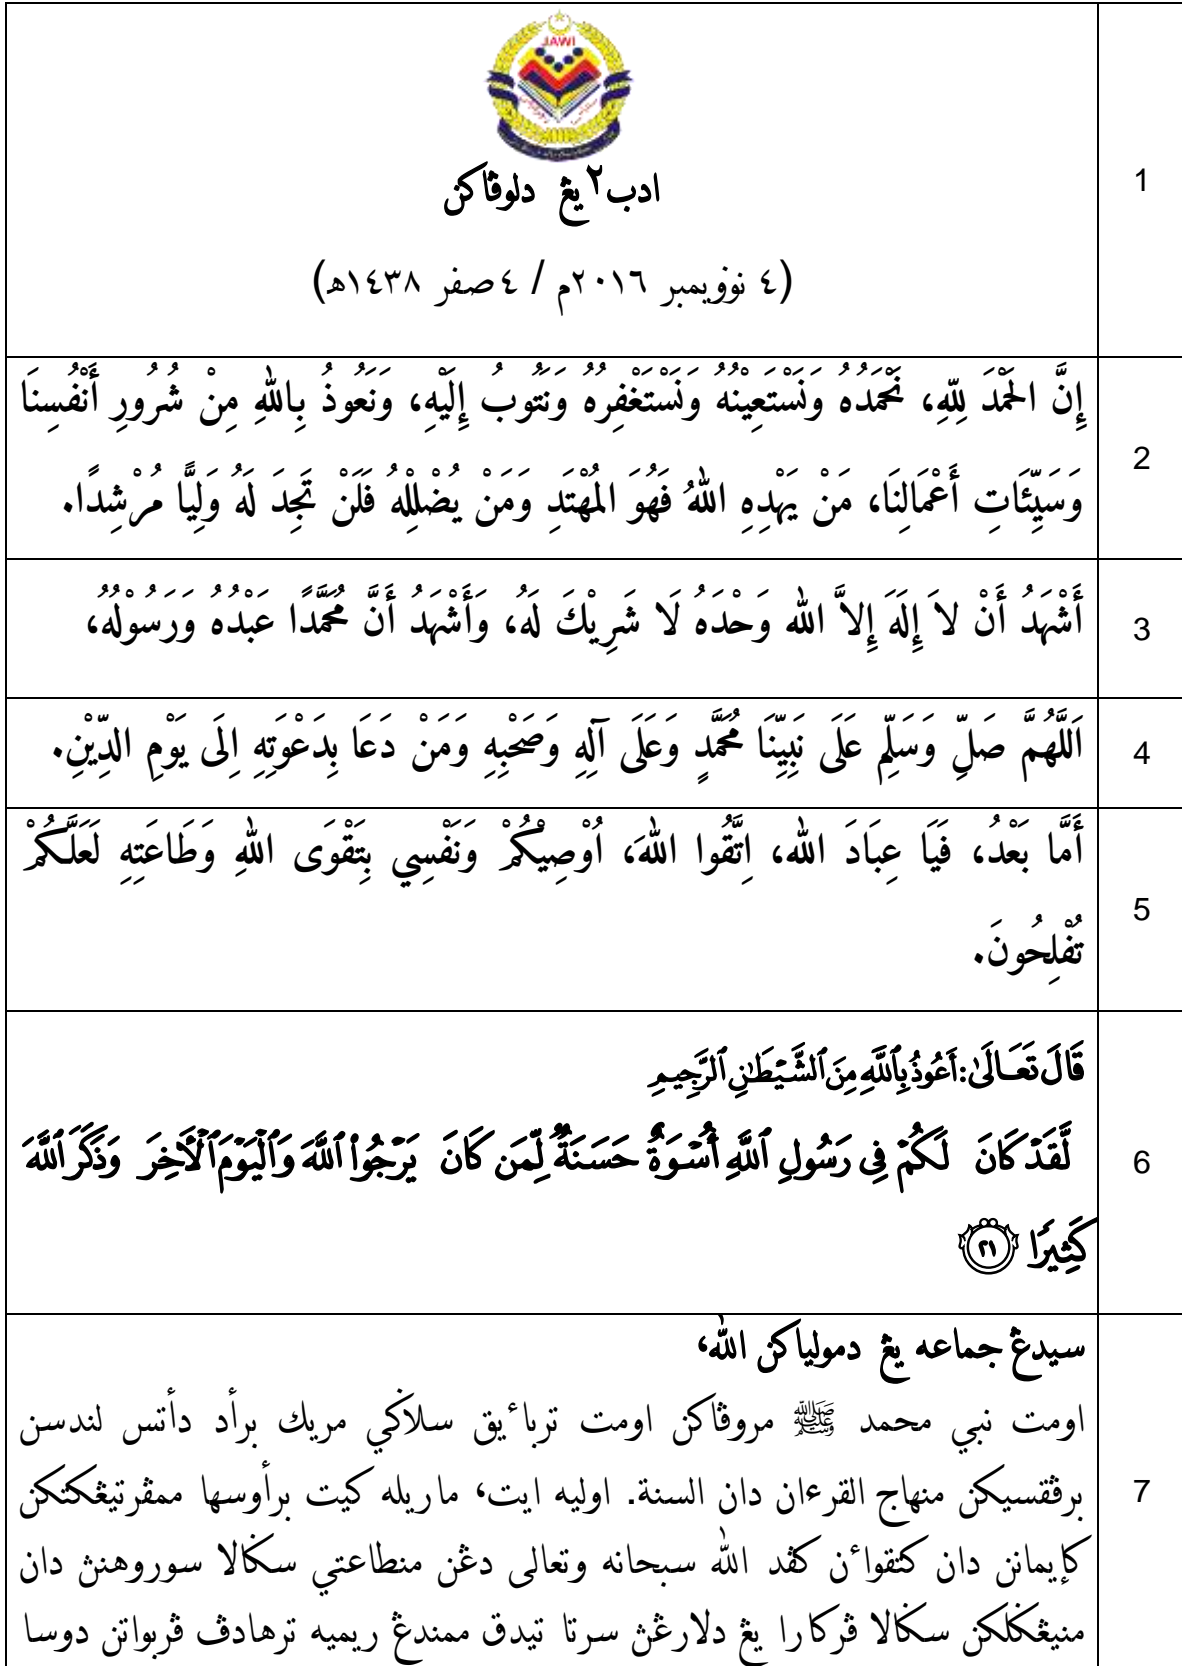 JAWI
ادب٢ يڠ دلوڤاكن
(٤ نوۏيمبر ٢٠١٦م / ٤ صفر ١٤٣٨ه)
1
إِنَّ الحَمْدَ لِلّهِ، نَحْمَدُهُ وَنَسْتَعِيْنُهُ وَنَسْتَغْفِرُهُ وَنَتُوبُ إِلَيْهِ، وَنَعُوذُ بِاللهِ مِنْ شُرُورِ أَنْفُسِنَا
وَسَيِّئَاتِ أَعْمَالِنَا، مَنْ يَهْدِهِ اللهُ فَهُوَ المُهْتَدِ وَمَنْ يُضْلِلْهُ فَلَنْ تَجِدَ لَهُ وَلِيًّا مُرْشِدًا.
2
أَشْهَدُ أَنْ لاَ إِلَهَ إِلاَّ الله وَحْدَهُ لَا شَرِيْكَ لَهُ، وَأَشْهَدُ أَنَّ مُحَمَّدًا عَبْدُهُ وَرَسُوْلُهُ،
3
اَللَّهُمَّ صَلِّ وَسَلِّم عَلَى نَبِيِّنَا مُحَمَّدٍ وَعَلَى آلِهِ وَصَحْبِهِ وَمَنْ دَعَا بِدَعْوَتِهِ اِلَى يَوْمِ الدِّيْنِ.
4
أَمَّا بَعْدُ، فَيَا عِبَادَ الله، اِتَّقُوا اللهَ، اُوْصِيْكُمْ وَنَفْسِي بِتَقْوَى اللهِ وَطَاعَتِهِ لَعَلَّكُمْ
تُفْلِحُونَ.
5
قَالَ تَعَالَىٰ: أَعُوذُ بِٱللَّهِ مِنَ ٱلشَّيْطَٰنِ ٱلرَّجِيمِ
لَّقَدْ كَانَ لَكُمْ فِى رَسُولِ ٱللَّهِ أُسْوَةٌ حَسَنَةٌ لِّمَن كَانَ يَرْجُوا۟ ٱللَّهَ وَٱلْيَوْمَ ٱلْءَاخِرَ وَذَكَرَ ٱللَّهَ
كَثِيرًا ٢١
6
سيدڠ جماعه يڠ دموليا كن الله،
اومت نبي محمد ﷺ مروڤاكن اومت تربائيق سلاڬي مريك برأد دأتس لندسن
برڤقسيكن منهاج القرءان دان السنة. اوليه ايت، ماريله كيت برأوسها ممڤرتيڠكتكن
كإيمانن دان كتقواءن كڤد الله سبحانه وتعالى دڠن منطاعتي سڬالا سوروهنڽ دان
منيڠڬلكن سڬالا ڤركارا يڠ دلارڠن سرتا تيدق ممندڠ ريميه ترهادڤ ڤربواتن دوسا
7